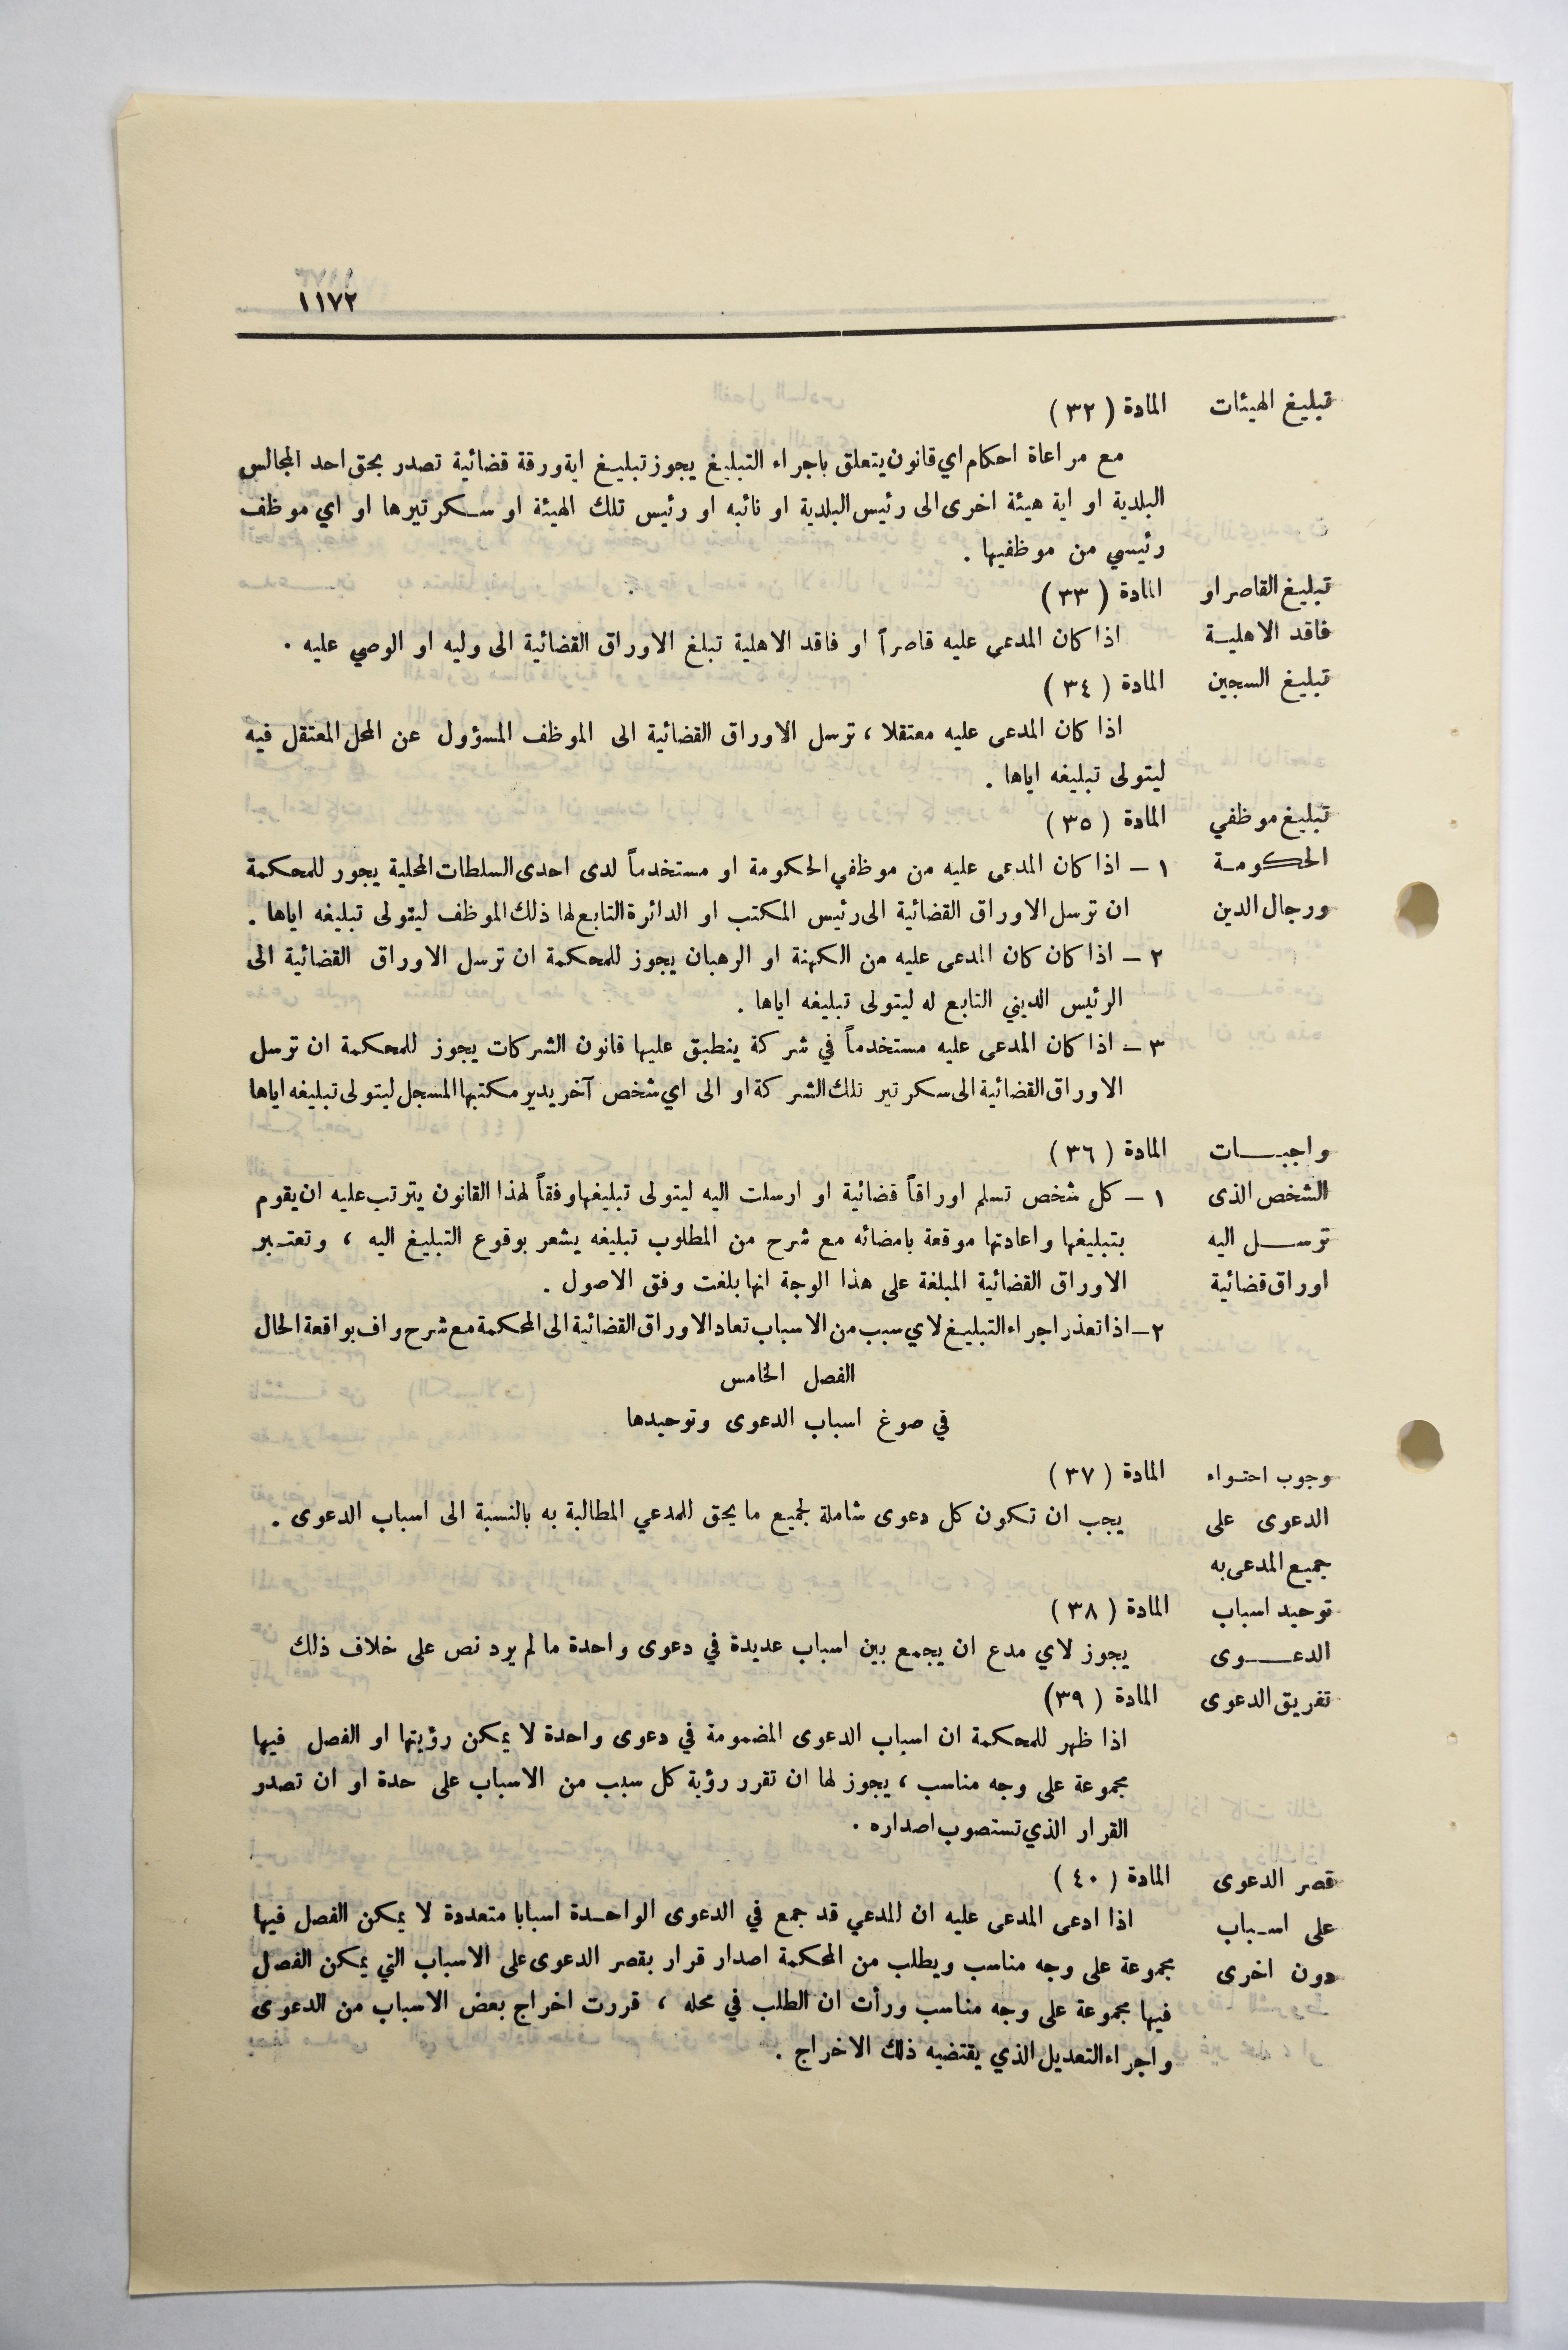 ١١٧٢
تبليغ الهيئات المادة ( ٣٢ )
مع مراعاة احكام اي قانون يتعلق باجراء التبليغ يجوز تبليغ اية ورقة قضائية تصدر بحق احد المجالس
البلدية او اية هيئة اخرى الى رئيس البلدية او نائبه او رئيس تلك الهيئة او سكرتيرها او اي موظف
رئيسي من موظفيها .
تبليغ القاصر او المادة ( ٣٣ )
فاقد الاهلية اذا كان المدعى عليه قاصراً او فاقد الاهلية تبلغ الاوراق القضائية الى وليه او الوصي عليه .
تبليغ السجين المادة ( ٣٤ )
اذا كان المدعى عليه معتقلا ، ترسل الاوراق القضائية الى الموظف المسؤول عن المحل المعتقل فيه
ليتولى تبليغه اياها .
تبليغ موظفي المادة ( ٣٥ )
الحكومة ١ – اذا كان المدعى عليه من موظفي الحكومة او مستخدماً لدى احدى السلطات المحلية يجوز للمحكمة
ورجال الدين ان ترسل الاوراق القضائية الى رئيس المكتب او الدائرة التابع لها ذلك الموظف ليتولى تبليغه اياها .
٢ – اذا كان كان المدعى عليه من الكهنة او الرهبان يجوز للمحكمة ان ترسل الاوراق القضائية الى
الرئيس الديني التابع له ليتولى تبليغه اياها .
٣ – اذا كان المدعى عليه مستخدماً في شركة ينطبق عليها قانون الشركات يجوز للمحكمة ان ترسل
الاوراق القضائية الى سكرتير تلك الشركة او الى اي شخص آخر يدير مكتبها المسجل ليتولى تبليغه اياها
واجبات المادة ( ٣٦ )
الشخص الذى ١ – كل شخص تسلم اوراقاً قضائية او ارسلت اليه ليتولى تبليغها وفقاً لهذا القانون يترتب عليه ان يقوم
ترسل اليه بتبليغها واعادتها موقعة بامضائه مع شرح من المطلوب تبليغه يشعر بوقوع التبليغ اليه ، وتعتبر
اوراق قضائية الاوراق القضائية المبلغة على هذا الوجة انها بلغت وفق الاصول .
٢ – اذا تعذر اجراء التبليغ لاي سبب من الاسباب تعاد الاوراق القضائية الى المحكمة مع شرح واف بواقعة الحال
الفصل الخامس
في صوغ اسباب الدعوى وتوحيدها
وجوب احتواء المادة ( ٣٧ )
الدعوى على يجب ان تكون كل دعوى شاملة لجميع ما يحق للمدعي المطالبة به بالنسبة الى اسباب الدعوى .
جميع المدعى به
توحيد اسباب المادة ( ٣٨ )
الدعوى يجوز لاي مدع ان يجمع بين اسباب عديدة في دعوى واحدة ما لم يرد نص على خلاف ذلك
تفريق الدعوى المادة ( ٣٩ )
اذا ظهر للمحكمة ان اسباب الدعوى المضمومة في دعوى واحدة لا يمكن رؤيتها او الفصل فيها
مجموعة على وجه مناسب ، يجوز لها ان تقرر رؤية كل سبب من الاسباب على حدة او ان تصدر
القرار الذي تستصوب اصداره .
قصر الدعوى المادة ( ٤٠ )
على اسباب اذا ادعى المدعى عليه ان المدعي قد جمع في الدعوى الواحدة اسبابا متعددة لا يمكن الفصل فيها
دون اخرى مجموعة على وجه مناسب ويطلب من المحكمة اصدار قرار بقصر الدعوى على الاسباب التي يمكن الفصل
فيها مجموعة على وجه مناسب ورأت ان الطلب في محله ، قررت اخراج بعض الاسباب من الدعوى
واجراء التعديل الذي يقتضيه ذلك الاخراج .